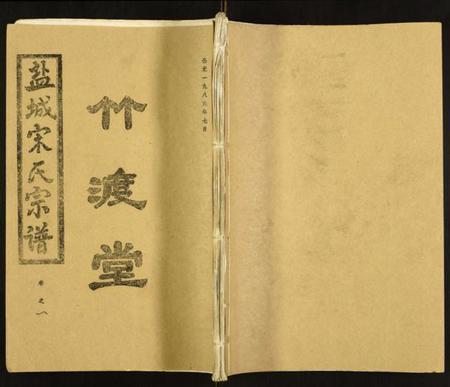 公元一九八六年七月
竹渡堂
盐城宋氏宗谱
卷之八